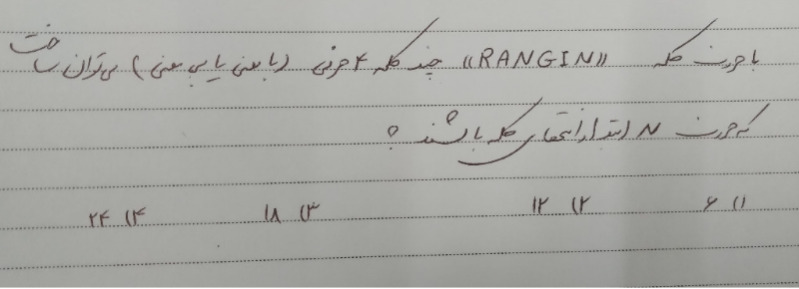 با حروف کلمه «RANGIN» چند کلمه ۴ حرفی (با معنی یا بی معنی) می‌توان ساخت
که حروف N ابتدا و انتهای کلمه باشند؟
۱) ۶ ۲) ۱۲ ۳) ۱۸ ۴) ۲۴